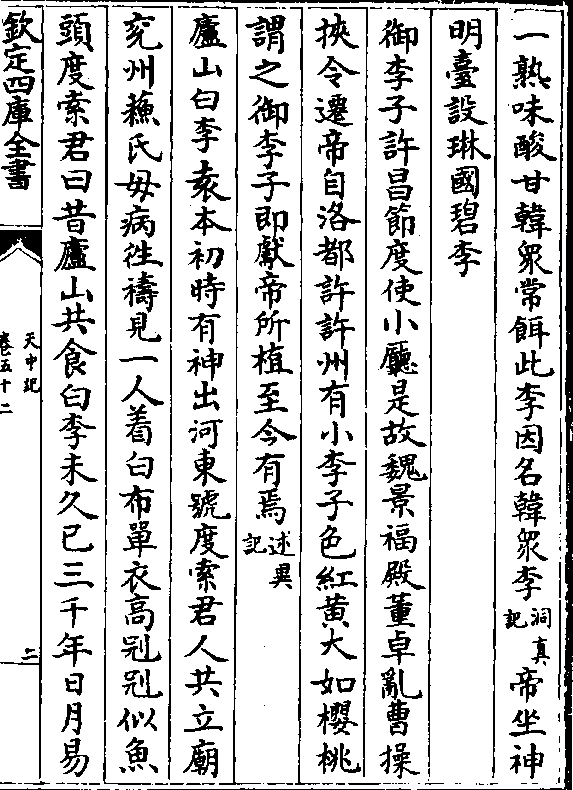 一熟味酸甘韓衆常餌此李因名韓衆李洞真記帝坐神
明臺設琳國碧李
御李子許昌節度使小廳是故魏景福殿董卓亂曹操
挾令遷帝自洛都許許州有小李子色紅黄大如櫻桃
謂之御李子即獻帝所植至今有焉述異記
廬山白李袁本初時有神出河東號度索君人共立廟
兖州蘓氏毋病徃禱見一人着白布單衣高冠冠似魚
頭度索君曰昔廬山共食白李未久已三千年日月易
欽定四庫全書
天中記
卷五十二
二